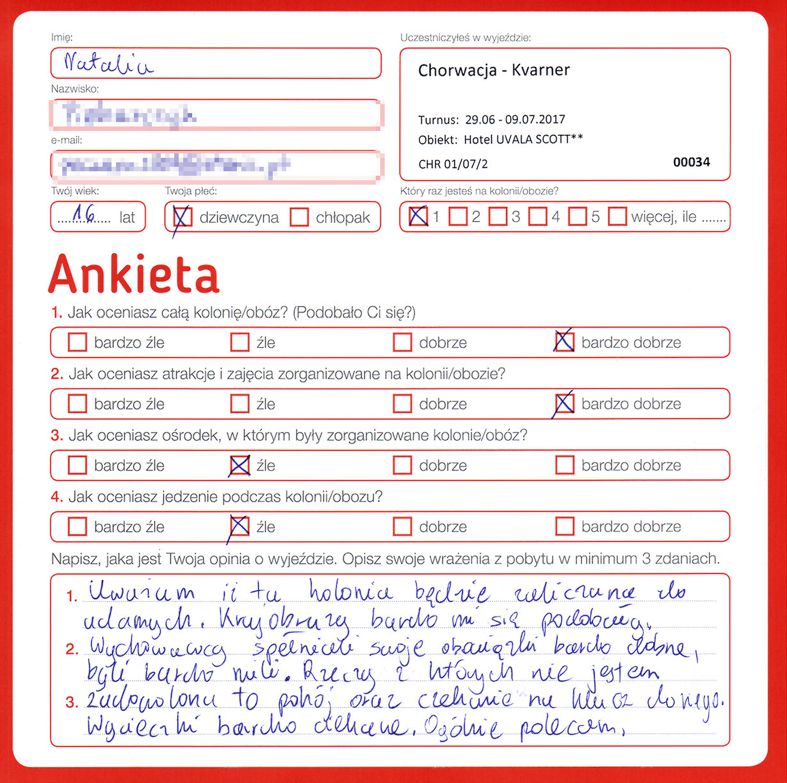 Imię:
Natalia
Nazwisko:
e-mail:
Twój wiek:
16 lat
Twoja płeć:
dziewczyna chłopak
Uczestniczyłeś w wyjeździe:
Chorwacja - Kvarner
Turnus: 29.06 - 09.07.2017
Obiekt: Hotel UVALA SCOTT**
CHR 01/07/2 00034
Który raz jesteś na kolonii/obozie?
1 2 3 4 5 więcej, ile .......
Ankieta
1. Jak oceniasz całą kolonię/obóz? (Podobało Ci się?)
bardzo źle źle dobrze bardzo dobrze
2. Jak oceniasz atrakcje i zajęcia zorganizowane na kolonii/obozie?
bardzo źle źle dobrze bardzo dobrze
3. Jak oceniasz ośrodek, w którym były zorganizowane kolonie/obóz?
bardzo źle źle dobrze bardzo dobrze
4. Jak oceniasz jedzenie podczas kolonii/obozu?
bardzo źle źle dobrze bardzo dobrze
Napisz, jaka jest Twoja opinia o wyjeździe. Opisz swoje wrażenia z pobytu w minimum 3 zdaniach.
1. Uważam iż ta kolonia będzie zaliczana do
udanych. Krajobrazy bardo mi się podobały.
2. Wychowawcy spełnieli swoje obowiązki bardzo dobrze,
byli bardzo mili. Rzeczy z których nie jestem
3. zadowolona to pokój oraz czekanie na klucz do niego.
Wycieczki bardzo ciekane. Ogólnie polecam.